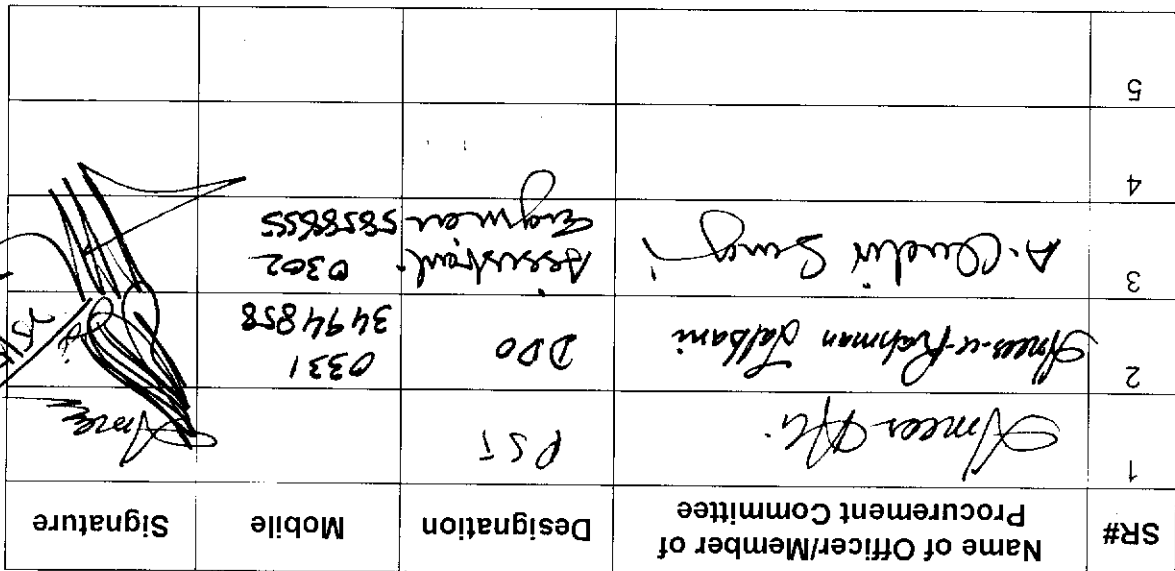 SR# Name of Officer/Member of Procurement Committee Designation Mobile Signature
1 Ameer Ali PST
2 Anees-u-Rahman Jalbani DDO 0331 3494858
3 A. Assistant Engineer 0302 5858655
4
5